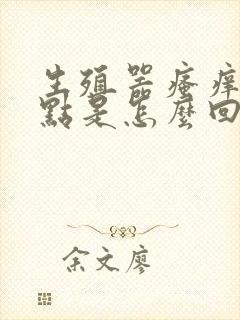 生殖器瘙痒
點是怎麼回
余文廖